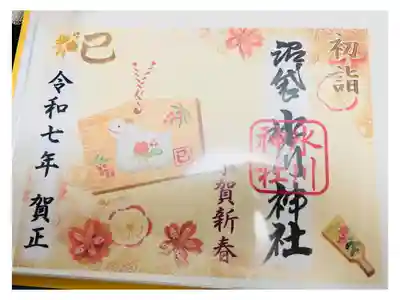 初詣
沼袋氷川神社
氷川
神社
賀新春
巳
巳
令和七年 賀正